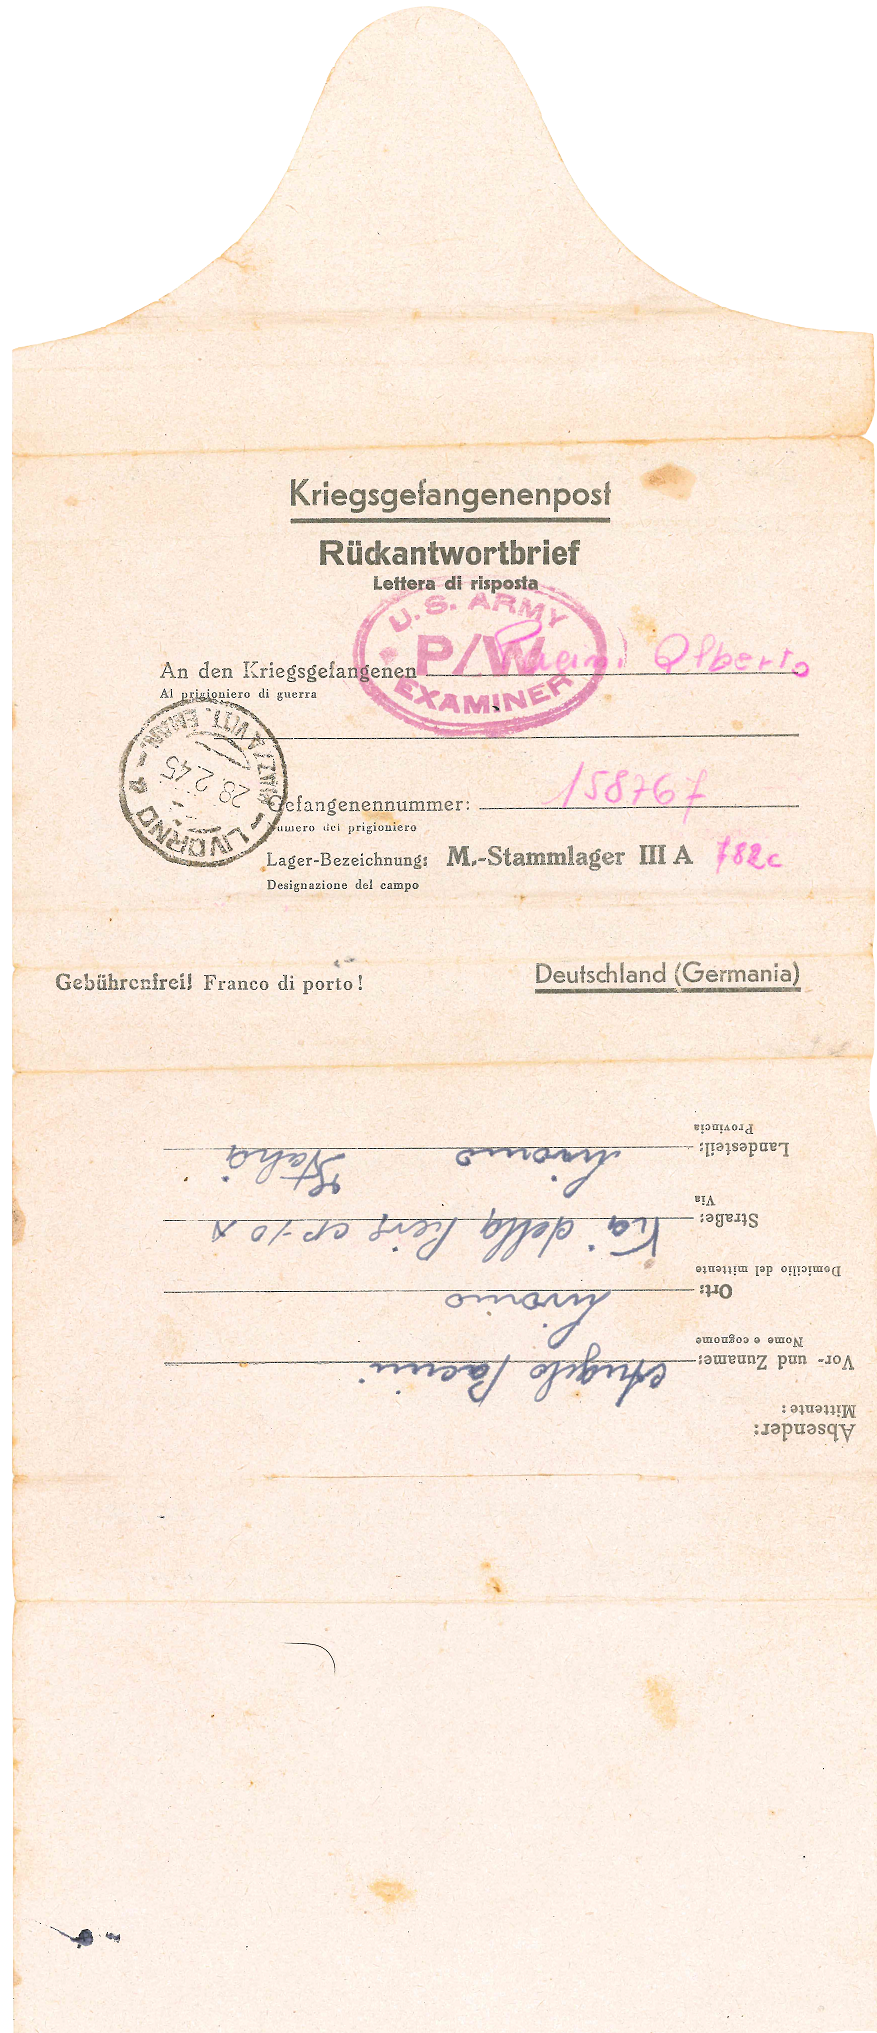 Kriegsgefangenenpost
Rückantwortbrief
Lettera di risposta
U.S. ARMY
P/W
EXAMINER
An den Kriegsgefangenen Pacini Alberto
Al prigioniero di guerra
LIVORNO
28.2.45
Gefangenennummer: 158767
Numero del prigioniero
Lager-Bezeichnung: M.-Stammlager III A 782c
Designazione del campo
Gebührenfrei! Franco di porto!
Deutschland (Germania)
Absender:
Mittente:
Vor- und Zuname: Angelo Pacini
Nome e cognome
Ort: Livorno
Domicilio del mittente
Straße: Via della
Via
Landesteil: Livorno Italia
Provincia